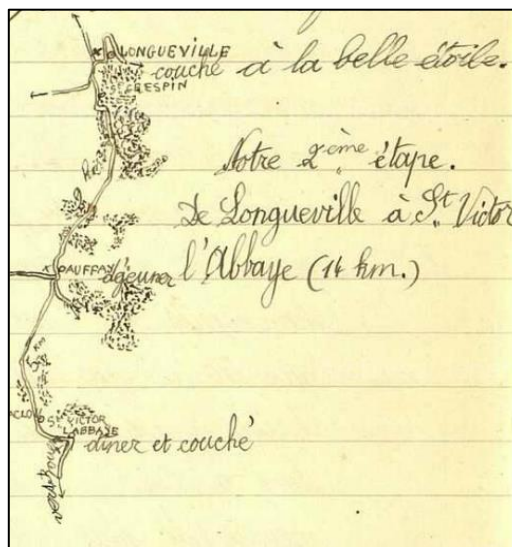 LONGUEVILLE
couché à la belle étoile.
St CRESPIN
Notre 2ème étape.
De Longueville à St. Victor
l'Abbaye (14 km.)
AUFFAY déjeuner
Km
St VICTOR
L'ABBAYE
diner et couché